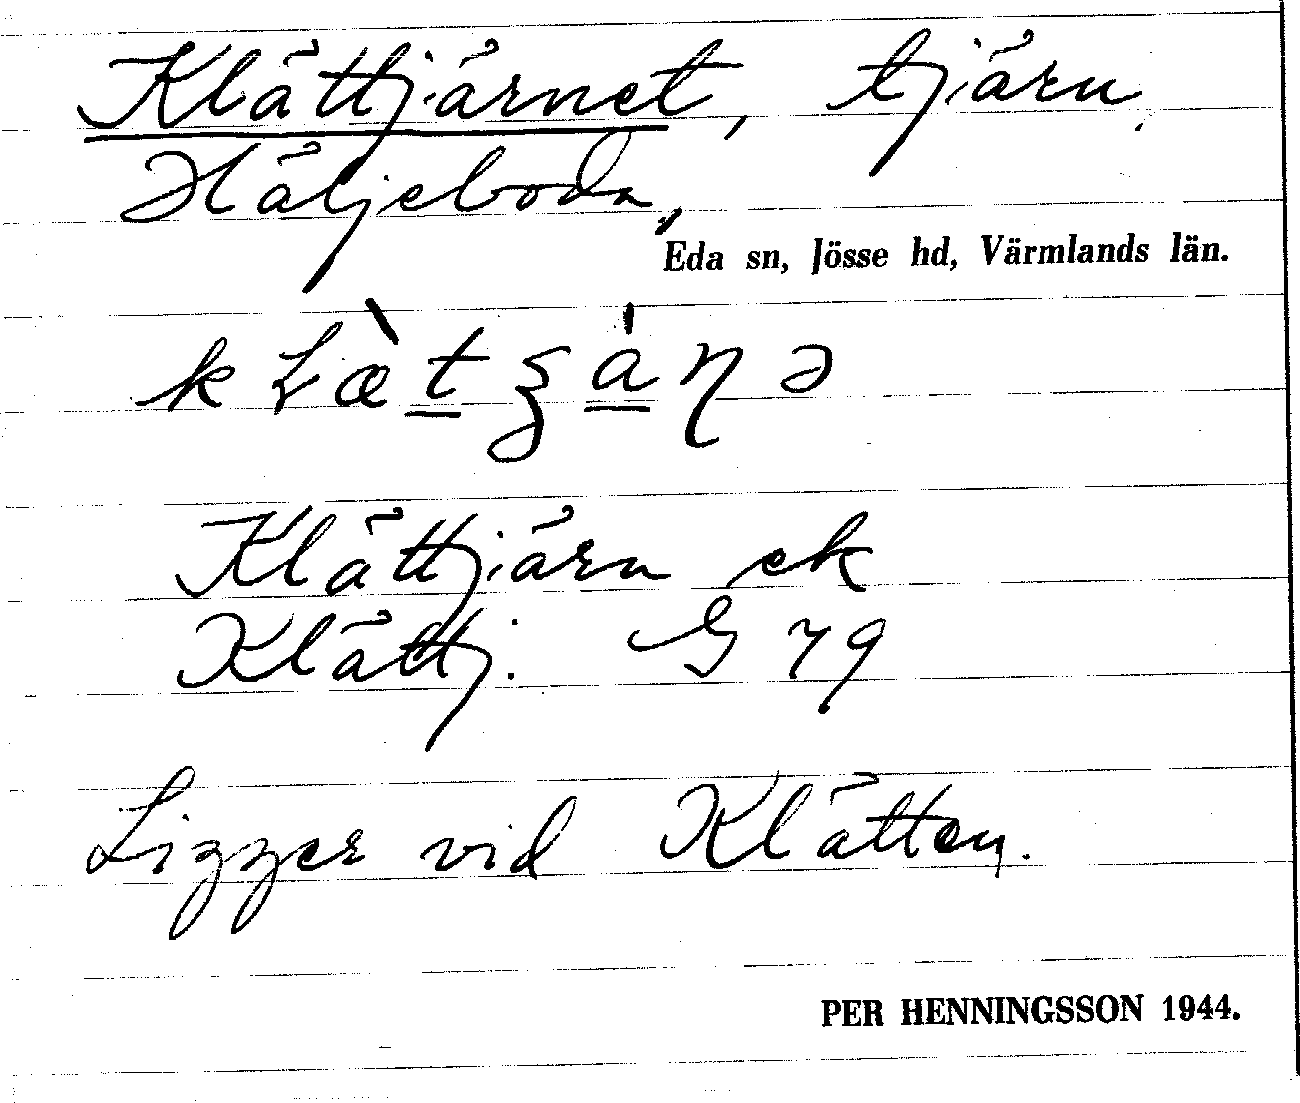 Klättjärnet, tjärn.
Häljeboda,
Eda sn, Jösse hd, Värmlands län.
Klättjärn ek
Klättj. G 79
Ligger vid Klätten.
PER HENNINGSSON 1944.